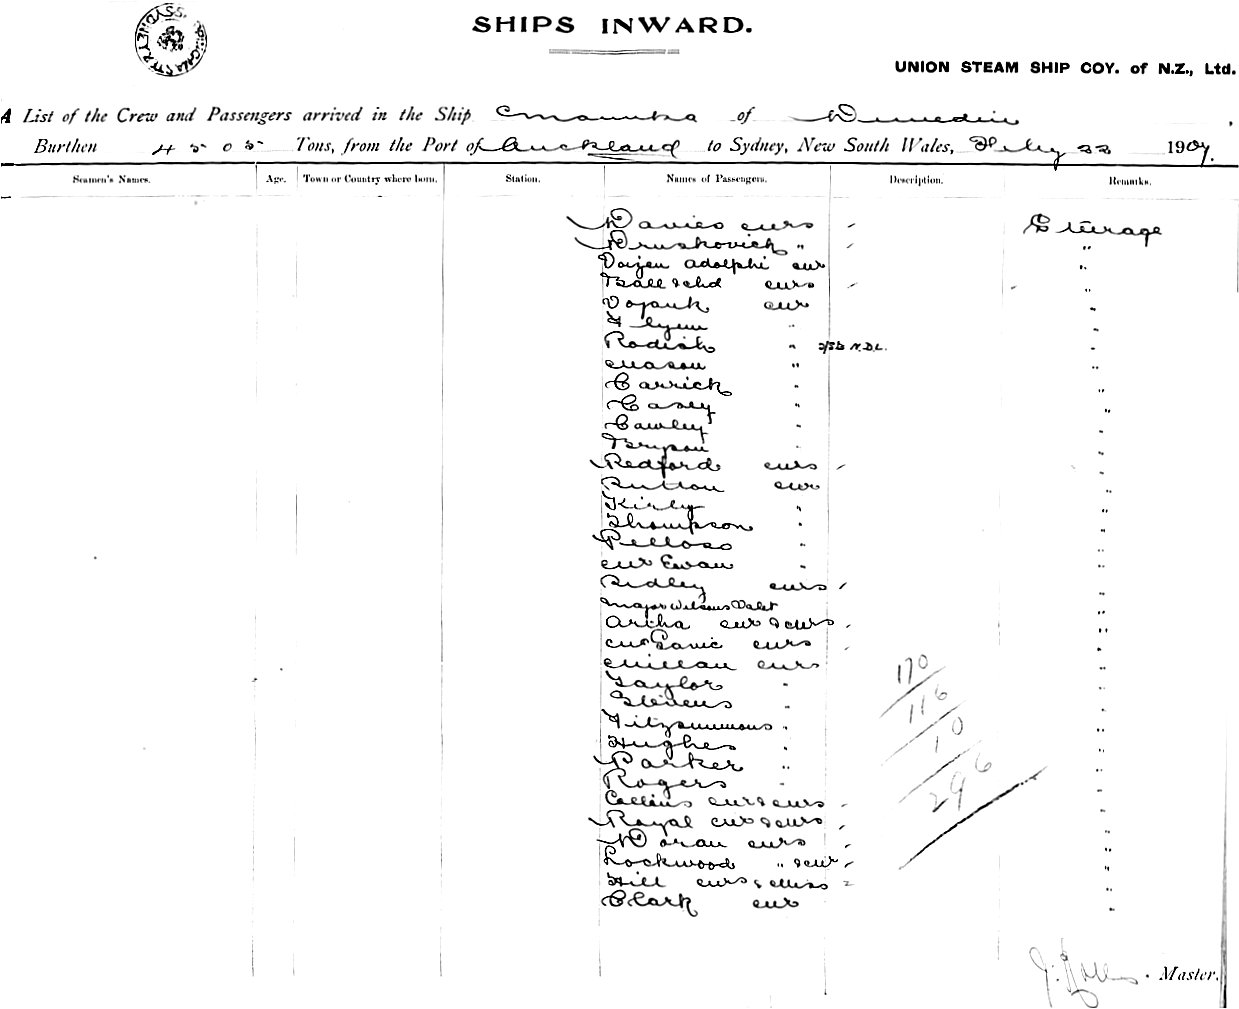 SHIPS INWARD.
UNION STEAM SHIP COY. of N.Z., Ltd.
A List of the Crew and Passengers arrived in the Ship Manuka of Dunedin,
Burthen 4505 Tons, from the Port of Auckland to Sydney, New South Wales, Feby 22 1907.
Seamen's Names. Age. Town or Country where born. Station. Names of Passengers. Description. Remarks.
Davies Mrs Steerage
Druskovich " "
Adolphi Mr "
Ball & chd Mrs "
Mr "
Flynn " "
Radish " N.D.L. "
Mason " "
Carrick " "
Casey " "
Cawley " "
Bryson " "
Redford Mrs "
Sutton Mr "
Kirby " "
Thompson " "
Pelloso " "
McEwan " "
Sidley Mrs "
Major Wilsons Valet "
Artha Mr & Mrs "
Mrs "
Millan Mrs "
Taylor " "
Stevens " "
Fitzsimmons " "
Hughes " "
Parker " "
Rogers " "
Collins Mr & Mrs "
Royal Mr & Mrs "
Doran Mrs "
Lockwood " & Mr "
Hill Mrs & Miss "
Clark Mr "
170
116
10
296
Master.